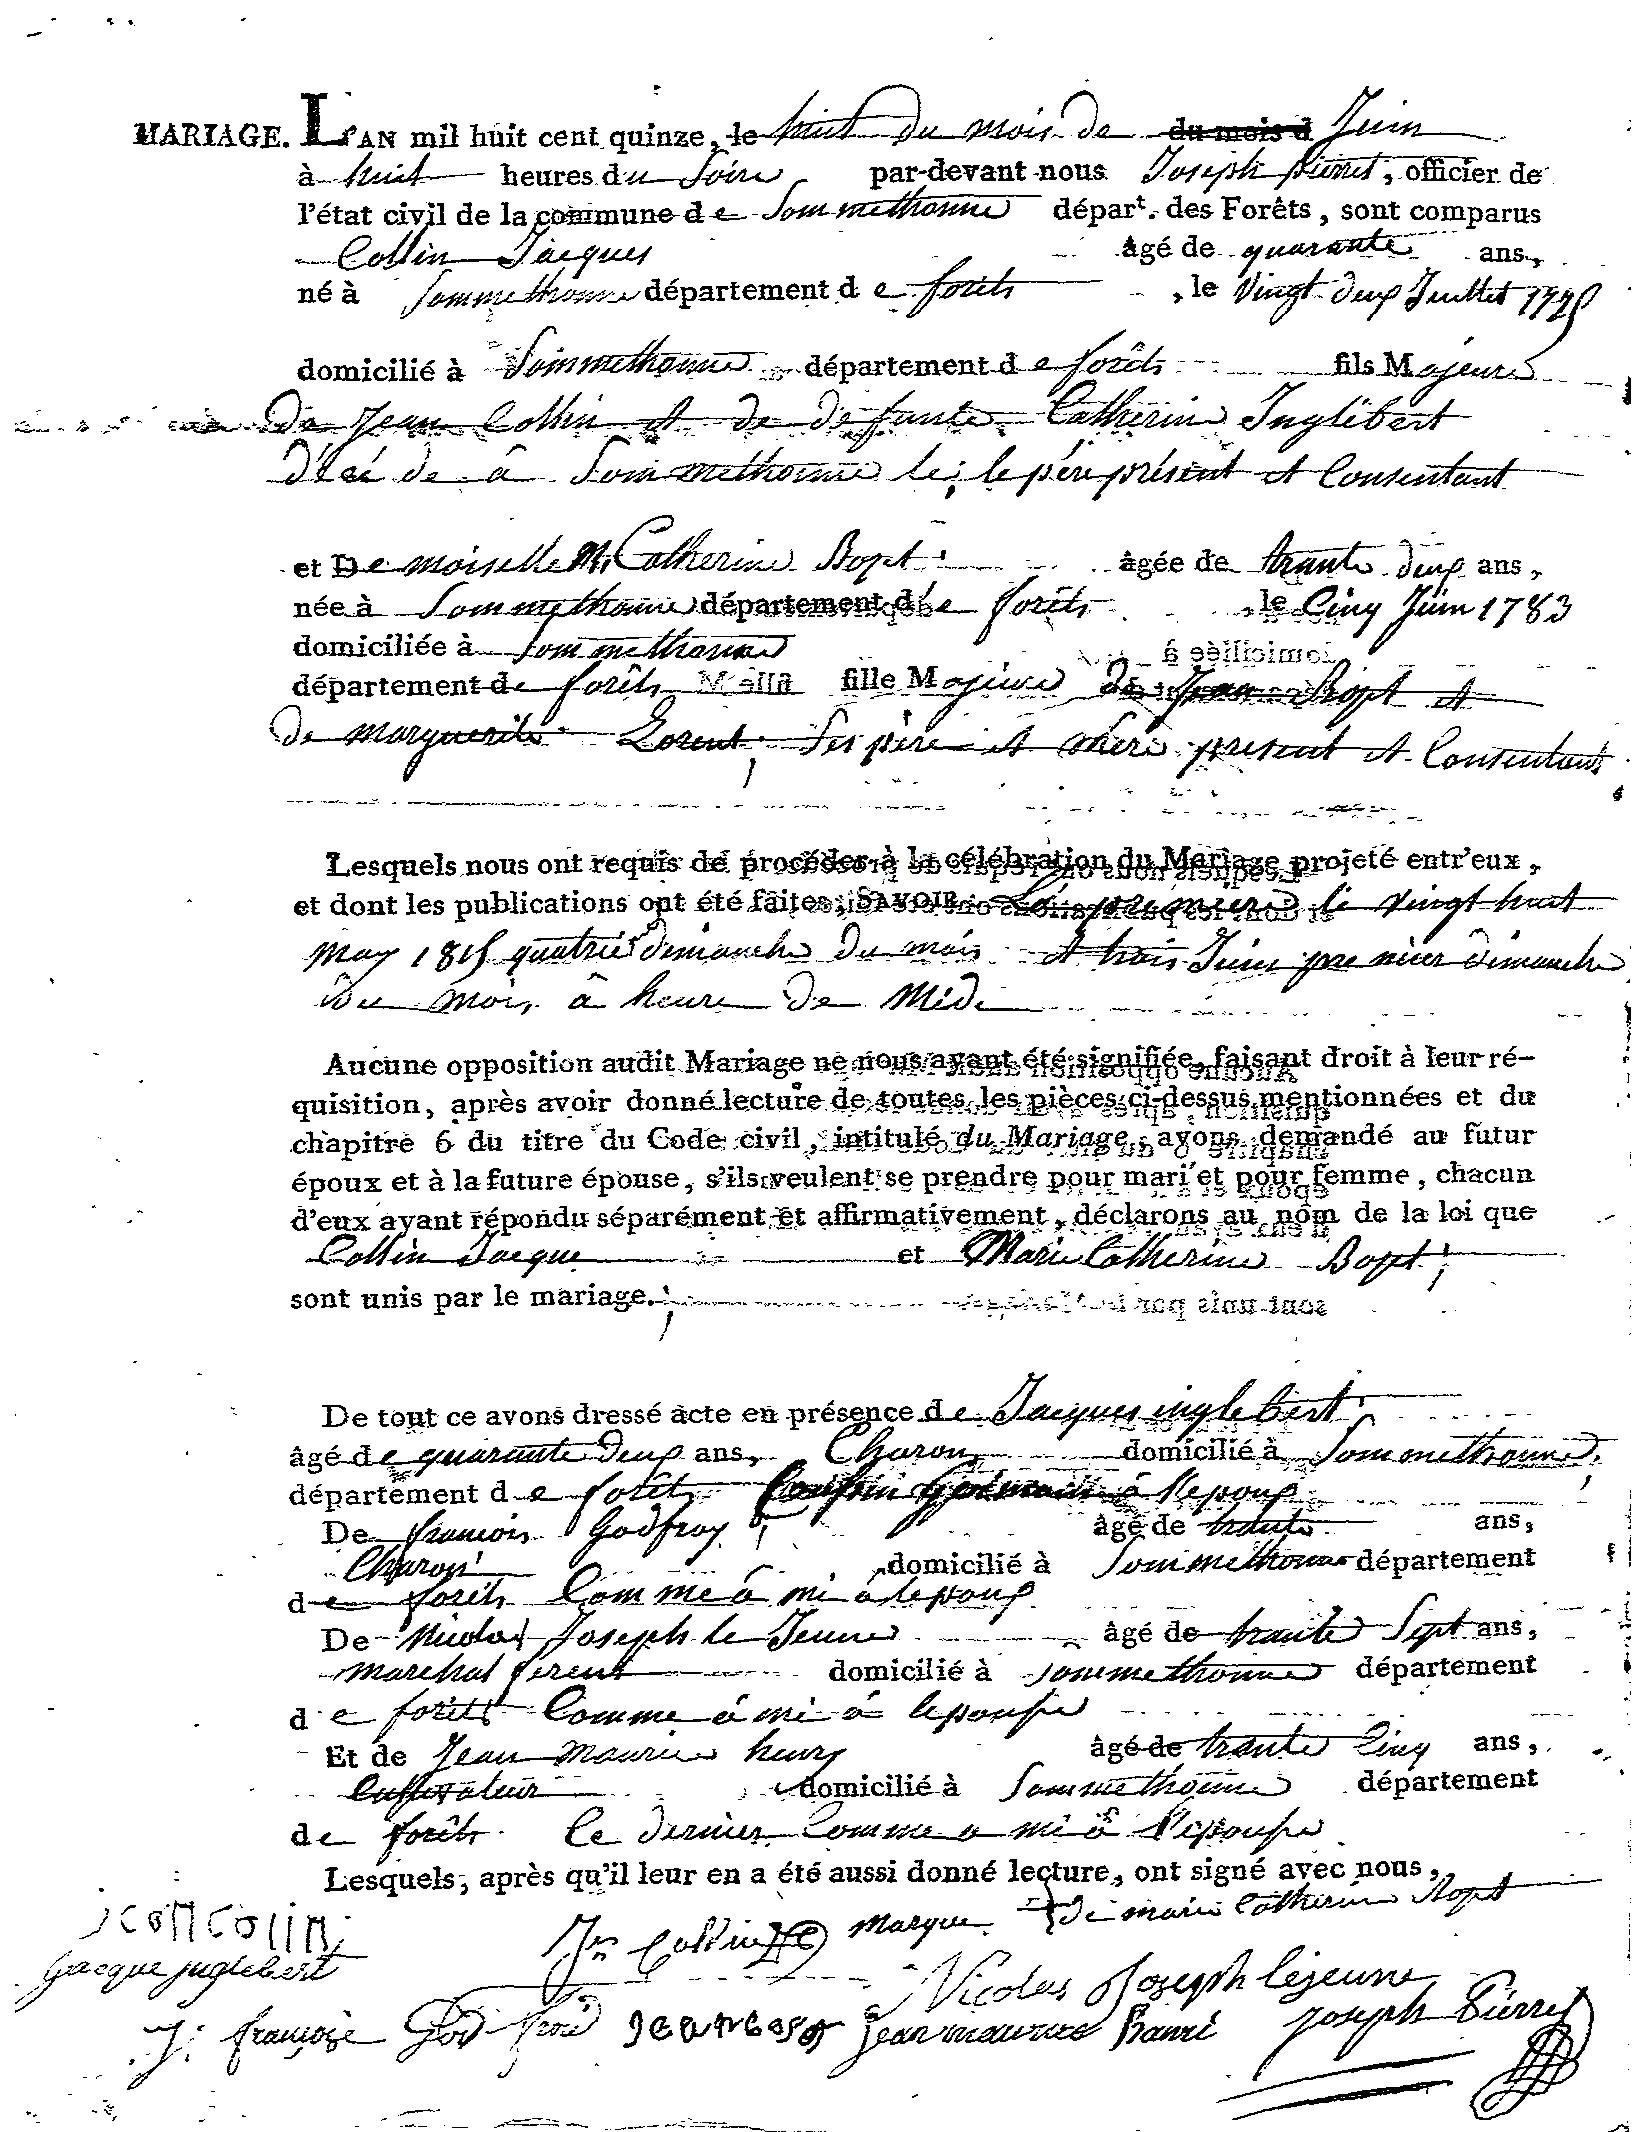 MARIAGE. L'AN mil huit cent quinze, le huit du mois de du mois d Juin
à huit heures du Soire par-devant nous Joseph pierret, officier de
l'état civil de la commune de Sommethonne départ. des Forêts, sont comparus
Collin Jacques âgé de quarante ans,
né à Sommethonne département de forêts, le Vingt deux Juillet 1775
domicilié à Sommethonne département de forêts fils Majeure
De Jean Collin et de defunte Catherine Inglébert
décédé à Sommethonne le ; le père présent et Consentant
et Demoiselle M. Catherine Bopt âgée de trante deux ans,
née à Sommethonne département de forêts, le Cinq Juin 1783
domiciliée à Sommethonne
département de forêts fille Majeure De Jean Bopt et
de marguerite Lorent, Ses père et mère present et Consentant
Lesquels nous ont requis de procéder à la célébration du Mariage projeté entr'eux,
et dont les publications ont été faites, SAVOIR La premiere le vingt huit
May 1815 quatrie dimanche du mois et trois Juin premier dimanche
du mois, à heure de Midi
Aucune opposition audit Mariage ne nous ayant été signifiée, faisant droit à leur ré-
quisition, après avoir donné lecture de toutes les pièces ci-dessus mentionnées et du
chapitre 6 du titre du Code civil, intitulé du Mariage, avons demandé au futur
époux et à la future épouse, s'ils veulent se prendre pour mari et pour femme, chacun
d'eux ayant répondu séparément et affirmativement, déclarons au nom de la loi que
Collin Jacque et Marie Catherine Bopt;
sont unis par le mariage.
De tout ce avons dressé acte en présence de Jacques inglebert
âgé de quarante deux ans, Charon domicilié à Sommethonne,
département de forêts Cousin Germain à l'epoux
De francois Godfroy âgé de trante ans,
Charon domicilié à Sommethonne département
de forêts Comme ami à lepoux
De Nicolas Joseph le Jeune âgé de trante Sept ans,
marechal ferent domicilié à Sommethonne département
de forêts Comme ami à lepouse
Et de Jean maurice henry âgé de trante Cinq ans,
Cultivateur domicilié à Sommethonne département
de forêts Ce dernier Comme ami à l'epouse
Lesquels, après qu'il leur en a été aussi donné lecture, ont signé avec nous,
jean colin marque de marie Catherine Bopt
Jacque juglebert Nicolas Joseph lejeune
J. françoie God froid jean bopt jean maurice Hanri joseph Pierret